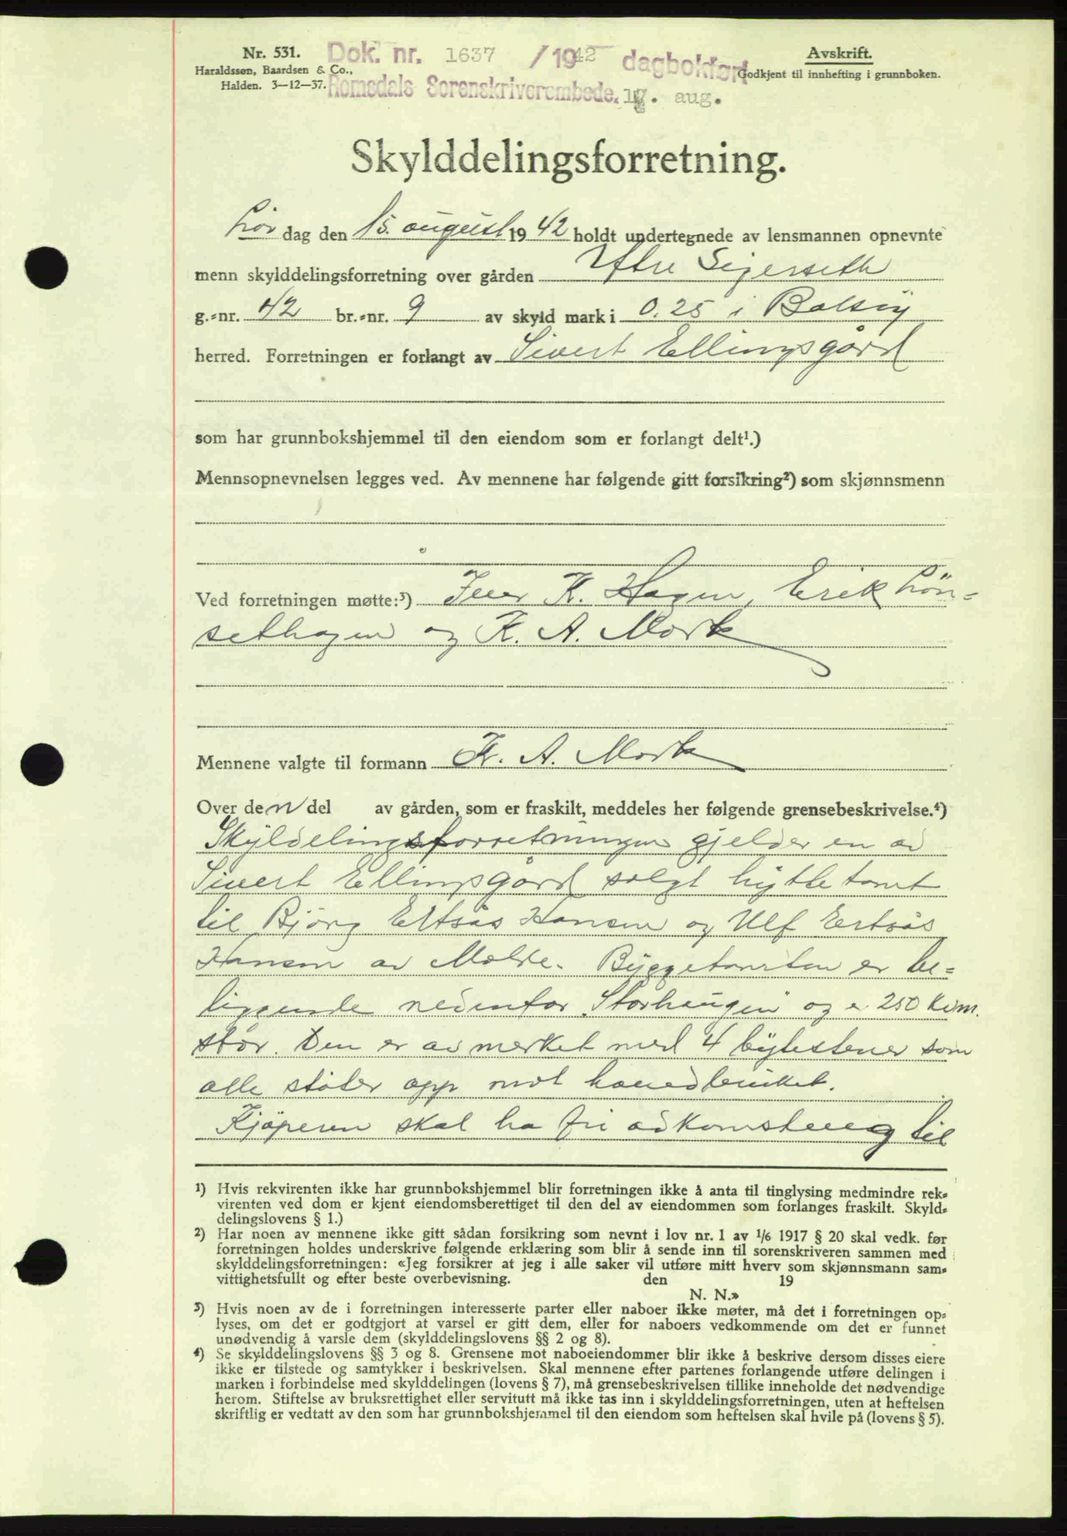 Nr. 531.
Haraldssøn, Baardsen & Co.,
Halden. 3—12—37.
Dok. nr. 1637 /1942 dagbokført
Romsdals Sorenskriverembede. 17. aug.
Avskrift.
Godkjent til innhefting i grunnboken.
Skylddelingsforretning.
Lørdag den 15. august 1942 holdt undertegnede av lensmannen opnevnte
menn skylddelingsforretning over gården Ytre Sejerseth
g.=nr. 42 br.=nr. 9 av skyld mark i 0.25 i Bolsøy
herred. Forretningen er forlangt av Sivert Ellingsgård
som har grunnbokshjemmel til den eiendom som er forlangt delt¹.)
Mennsopnevnelsen legges ved. Av mennene har følgende gitt forsikring²) som skjønnsmenn
Ved forretningen møtte:³) Iver K. Hagen, Erik Løn=
sethagen og K. A. Mork
Mennene valgte til formann K. A. Mork
Over den del av gården, som er fraskilt, meddeles her følgende grensebeskrivelse.⁴)
Skyldelingsforretningen gjelder en av
Sivert Ellingsgård solgt hyttetomt
til Bjørg Ertsås Hansen og Ulf Ertsås
Hansen av Molde. Byggetomten er be=
liggende nedenfor "Storhaugen" og er 250 kvm.
stør. Den er avmerket med 4 bytestener som
alle støter opp mot hovedbruket.
Kjøperen skal ha fri adkomstveg til
¹) Hvis rekvirenten ikke har grunnbokshjemmel blir forretningen ikke å anta til tinglysing medmindre rek=
virenten ved dom er kjent eiendomsberettiget til den del av eiendommen som forlanges fraskilt. Skyld=
delingslovens § 1.)
²) Har noen av mennene ikke gitt sådan forsikring som nevnt i lov nr. 1 av 1/6 1917 § 20 skal vedk. før
forretningen holdes underskrive følgende erklæring som blir å sende inn til sorenskriveren sammen med
skylddelingsforretningen: «Jeg forsikrer at jeg i alle saker vil utføre mitt hverv som skjønnsmann sam=
vittighetsfullt og efter beste overbevisning. den 19
N. N.»
³) Hvis noen av de i forretningen interesserte parter eller naboer ikke møter, må det i forretningen op=
lyses, om det er godtgjort at varsel er gitt dem, eller for naboers vedkommende om det er funnet
unødvendig å varsle dem (skylddelingslovens §§ 2 og 8).
⁴) Se skylddelingslovens §§ 3 og 8. Grensene mot naboeiendommer blir ikke å beskrive dersom disses eiere
ikke er tilstede og samtykker i beskrivelsen. Skal mennene efter partenes forlangende utføre delingen i
marken i forbindelse med skylddelingen (lovens § 7), må grensebeskrivelsen tillike inneholde det nødvendige
herom. Stiftelse av bruksrettighet eller servitutt må ikke tas inn i skylddelingsforretningen, uten at heftelsen
skriftlig er vedtatt av den som har grunnbokshjemmel til den eiendom som heftelsen skal hvile på (lovens § 5).